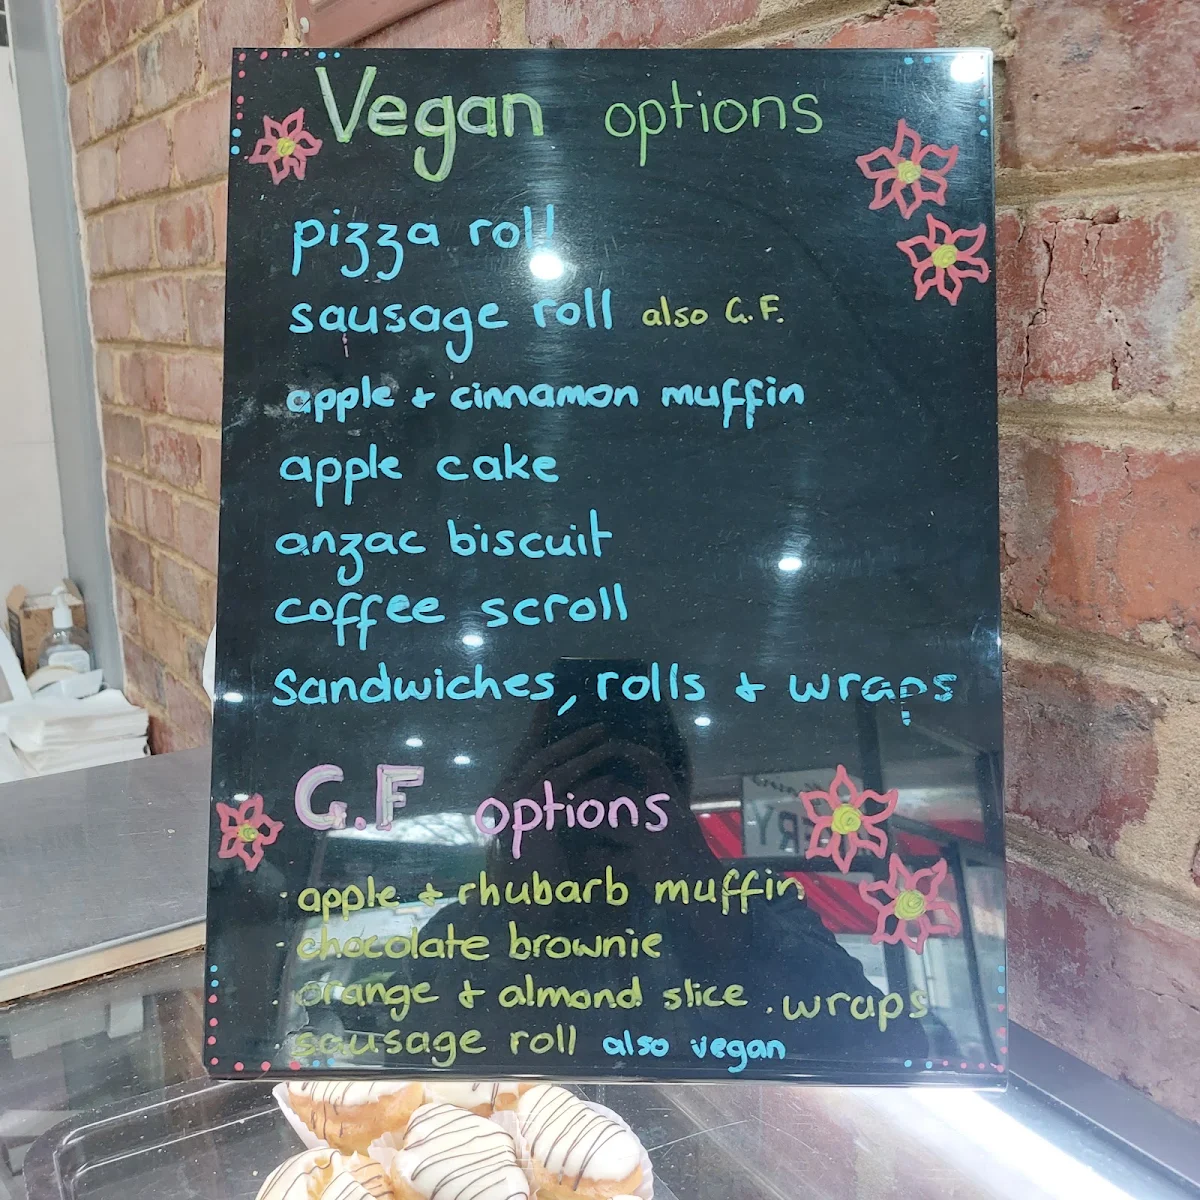 Vegan options
pizza roll
sausage roll also G.F.
apple & cinnamon muffin
apple cake
anzac biscuit
coffee scroll
Sandwiches, rolls & wraps
G.F options
· apple & rhubarb muffin
· chocolate brownie
· orange & almond slice . wraps
· sausage roll also vegan